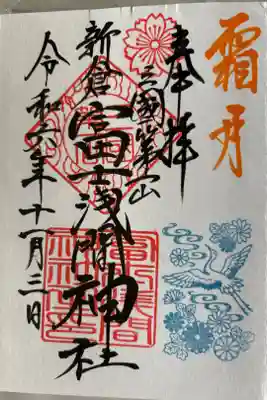 霜月
奉拝
三國第一山
新倉富士浅間神社
令和六年十一月三日